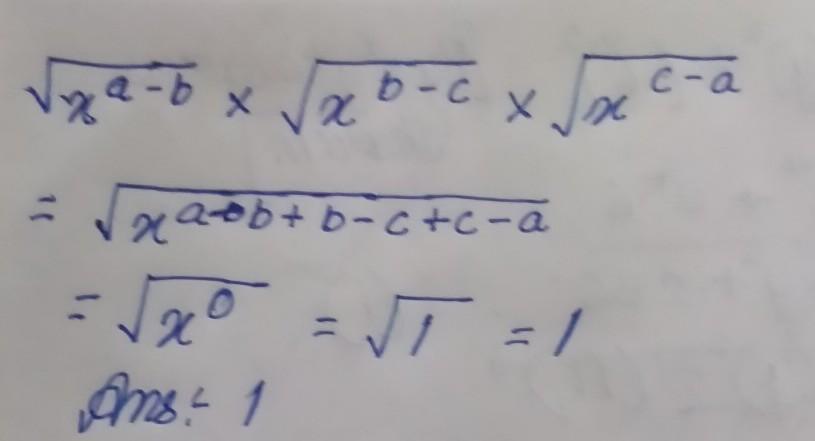 √x^(a-b) × √x^(b-c) × √x^(c-a)
= √x^(a-b+b-c+c-a)
= √x^0 = √1 = 1
Ans:- 1